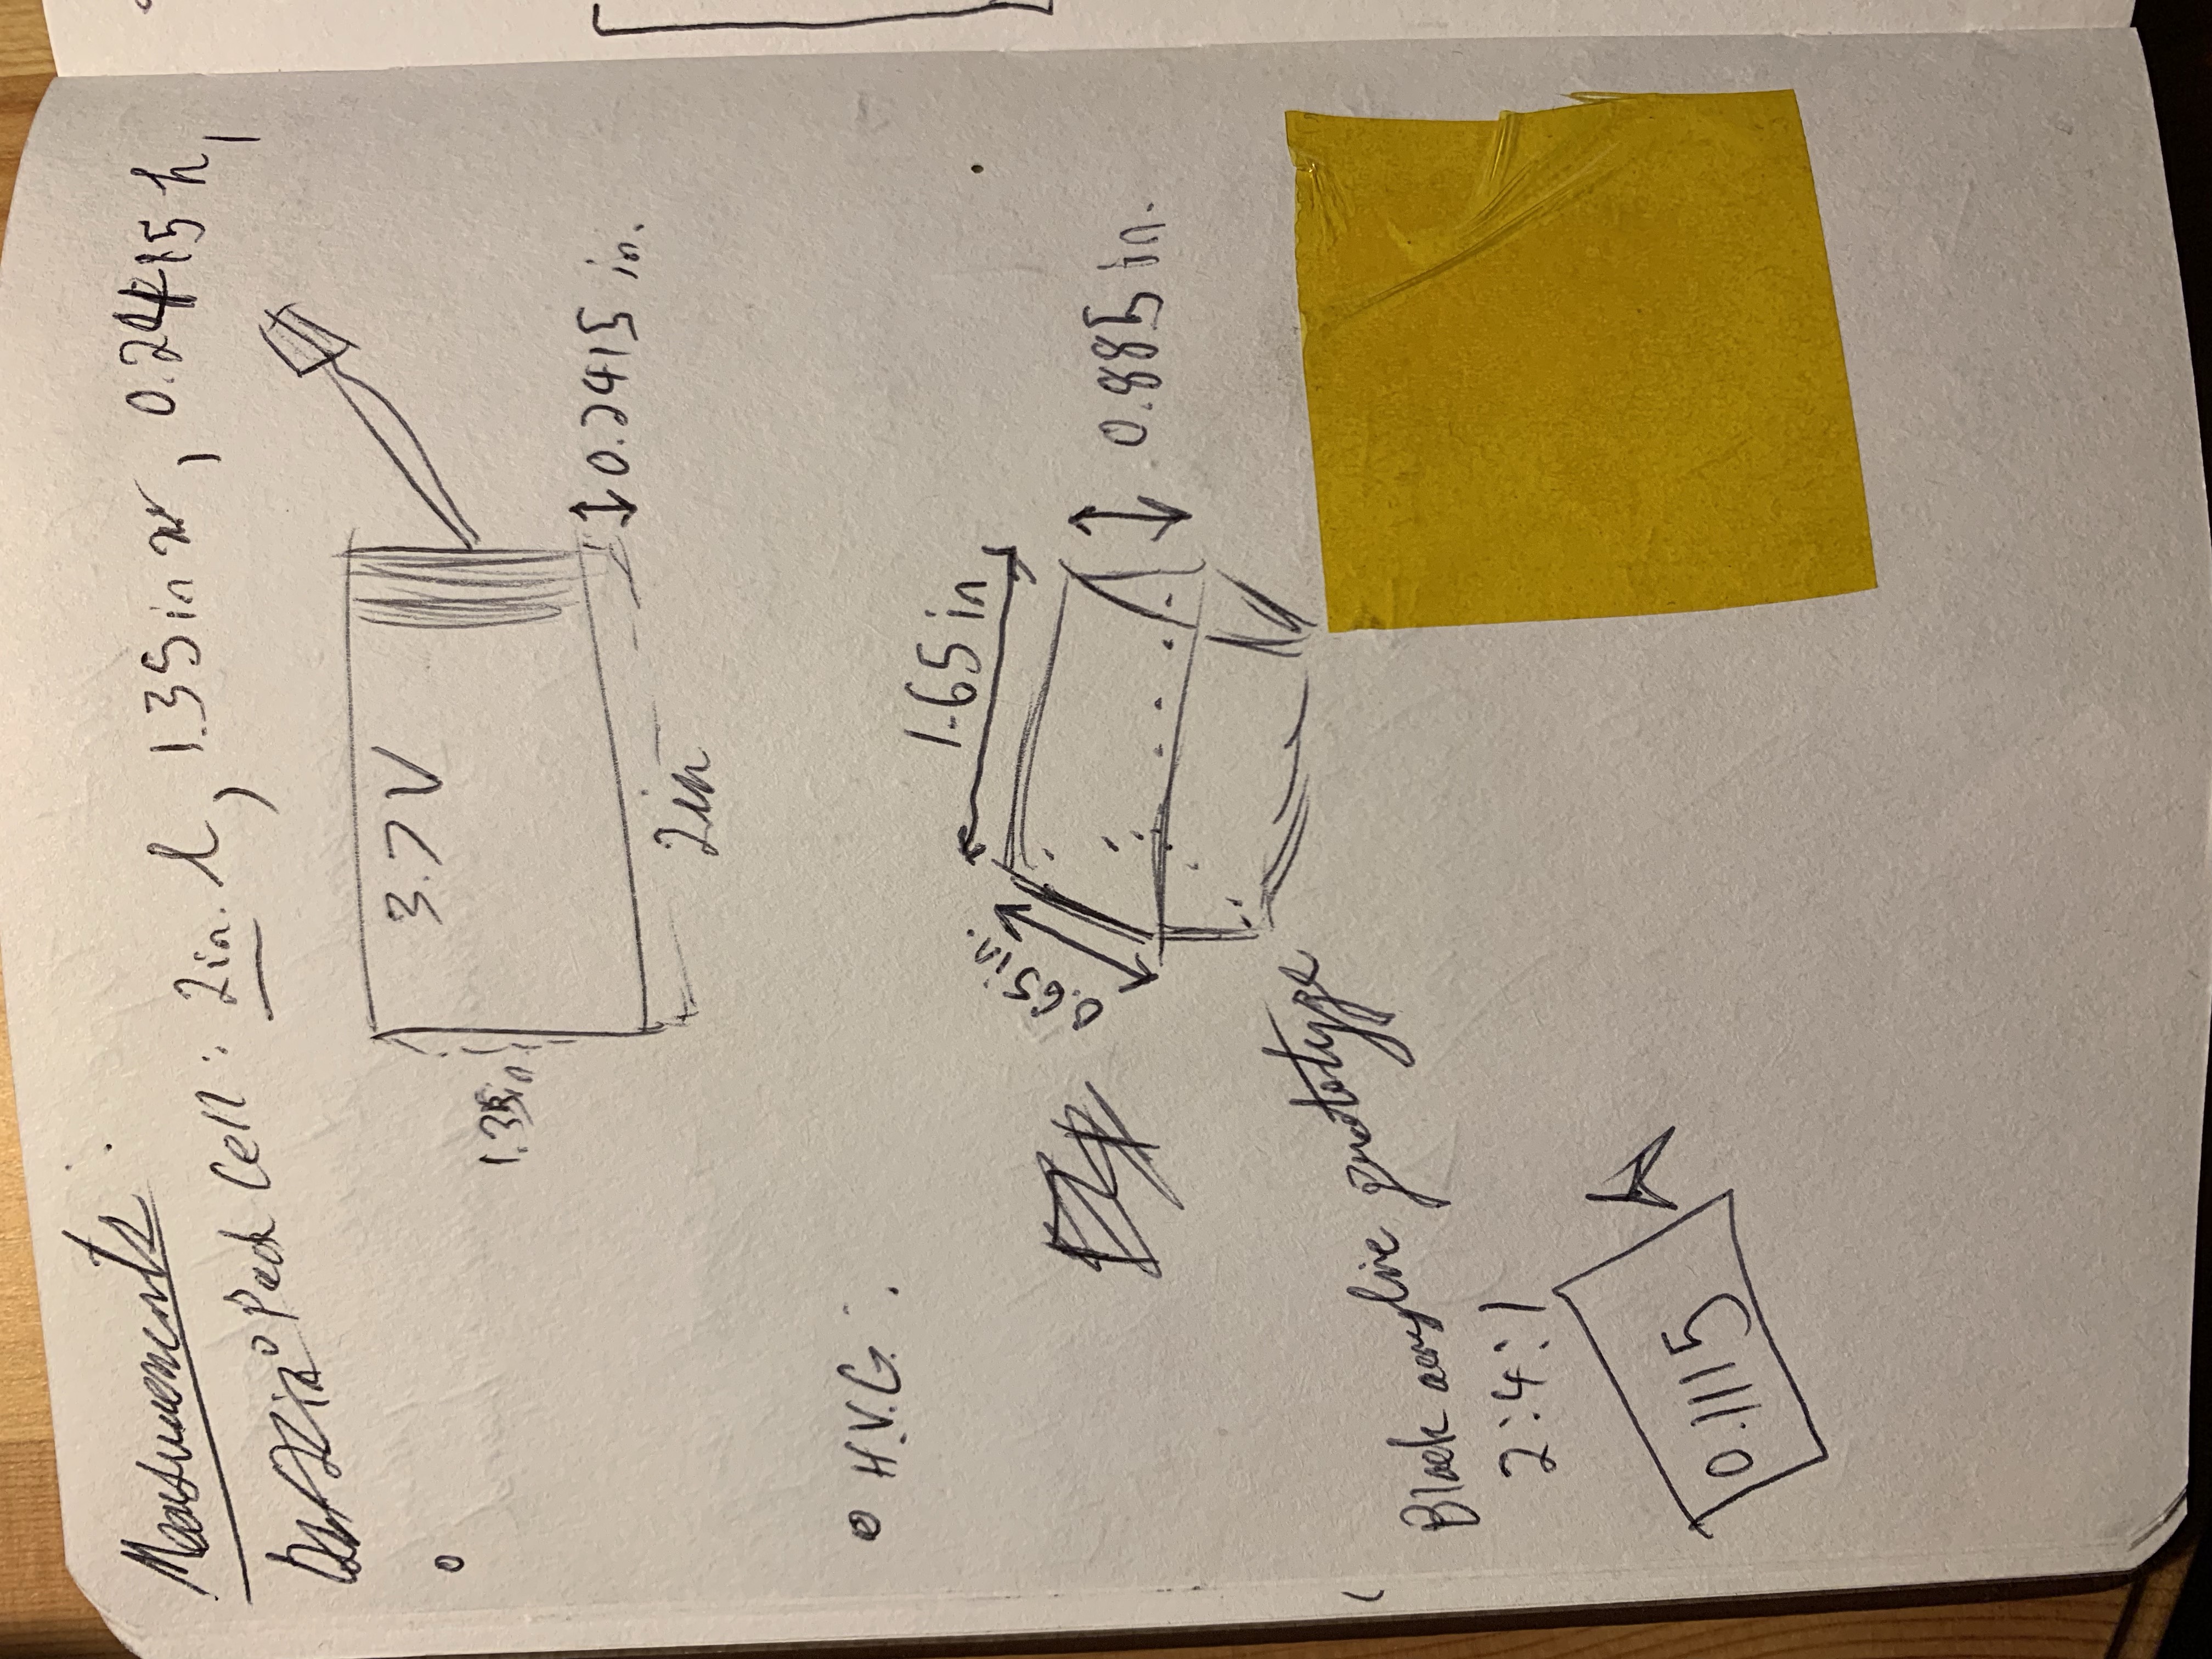 Measurements:
Pack Cell: 2in. l, 1.35in w, 0.2415 h,
3.7V
1.35in
0.2415 in.
2in
H.V.G.:
1.65 in
0.65in.
0.885 in.
Black acrylic prototype
2:4:1
0.1115